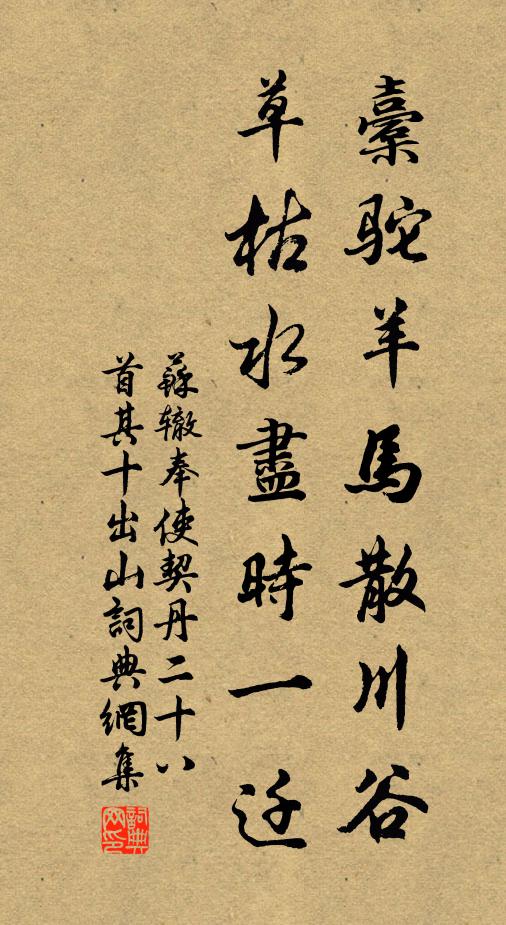 橐駝羊馬散川谷
草枯水盡時一迁
蘇辙奉使契丹二十八
首其十出山詞典網集
詞典网印